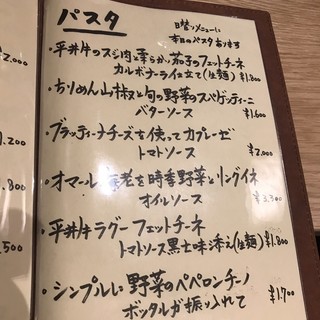 パスタ
日替りメニューに
本日のパスタあります
・平井牛のスジ肉と柔らか茄子のフェットチーネ
カルボナーライ仕立て(生麺) ¥1.800
・ちりめん山椒と旬の野菜のスパゲッティーニ
バターソース ¥1.600
・ブラッティーナチーズを使ってカプレーゼ
トマトソース ¥2.000
・オマール海老と時季野菜とリングイネ
オイルソース ¥3.300
・平井牛ラグーフェットチーネ
トマトソース黒七味添え(生麺) ¥1.800
・シンプルに野菜のペペロンチーノ
ボッタルガ振り入れて ¥1.700
.200
.800
.500